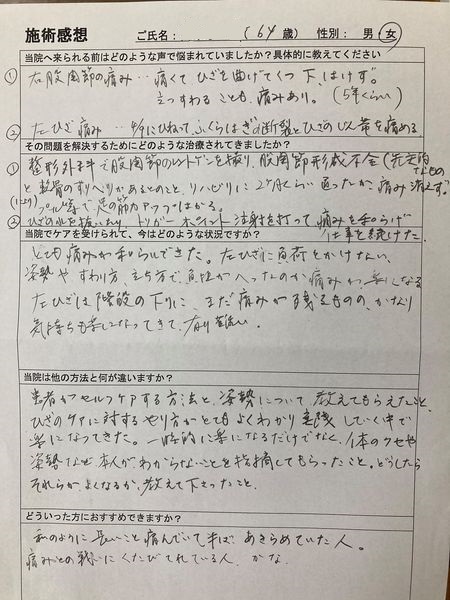 施術感想 ご氏名: (64 歳) 性別: 男・女
当院へ来られる前はどのような声で悩まれていましたか?具体的に教えてください
① 右股関節の痛み…痛くて ひざを曲げてくつ下、はけず。
立つすわることも、痛みあり。(5年くらい)
② 左ひざ痛み… ひねって、ふくらはぎの断裂とひざのじん帯を痛める
その問題を解決するためにどのような治療されてきましたか?
① 整形外科で股関節のレントゲンを撮り、股関節形成不全(先天的なもの
と軟骨のすりへりがあるとのこと、リハビリに2ケ月くらい通ったが、痛み消えず。
プール等で足の筋力アップはかる。
② ひざの水を抜いたり トリガーポイント注射を打って 痛みを和らげ
仕事を続けた。
当院でケアを受けられて、今はどのような状況ですか?
とても痛みが和らいできた。左ひざに負荷をかけない、
姿勢や すわり方 立ち方で、負担がへったのか 痛みが 楽になる
左ひざは階段の下りに、まだ痛みが残るものの、かなり
気持ちも楽になってきて、有り難い。
当院は他の方法と何が違いますか?
患者がセルフケアする方法と、姿勢について、教えてもらえたこと、
ひざのケアに対するやり方がとてもよくわかり 実践していく中で
楽になってきた。一時的に楽になるだけでなく、体のクセや
姿勢など 本人が、わからないことを指摘してもらったこと。どうしたら
それらが、よくなるか、教えて下さったこと。
どういった方におすすめできますか?
私のように 長いこと 痛んでいて 半ば、あきらめていた人。
痛みとの戦いに くたびれている人 かな。